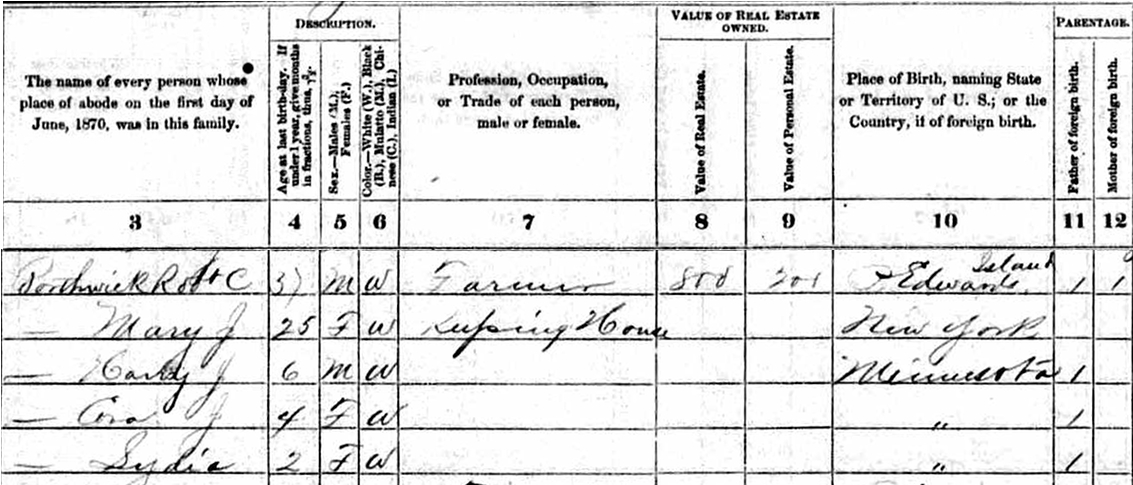 DESCRIPTION.
VALUE OF REAL ESTATE OWNED.
PARENTAGE.
The name of every person whose place of abode on the first day of June, 1870, was in this family.
Age at last birth-day. If under 1 year, give months in fractions, thus, 3/12.
Sex.—Males (M.), Females (F.)
Color.—White (W.), Black (B.), Mulatto (M.), Chinese (C.), Indian (I.)
Profession, Occupation, or Trade of each person, male or female.
Value of Real Estate.
Value of Personal Estate.
Place of Birth, naming State or Territory of U. S.; or the Country, if of foreign birth.
Father of foreign birth.
Mother of foreign birth.
3 4 5 6 7 8 9 10 11 12
Robt C 37 M W Farmer 800 200 P Edwards Island 1 1
— Mary J 25 F W Keeping House New York
— Harry J 6 M W Minnesota 1
— Cora J 4 F W " 1
— Lydia 2 F W " 1